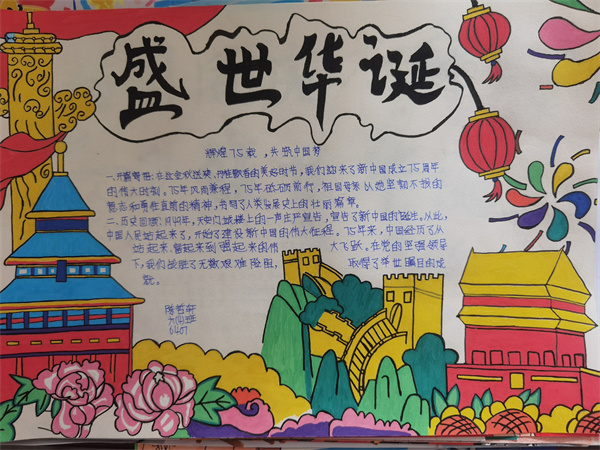 盛世华诞
辉煌75载,共筑中国梦
一.开篇寄语:在这金秋送爽、丹桂飘香的美好时节,我们迎来了新中国成立75周年
的伟大时刻。75年风雨兼程,75年砥砺前行,祖国母亲以她坚韧不拔的
意志和勇往直前的精神,书写了人类发展史上的壮丽篇章。
二.历史回顾:1949年,天安门城楼上的一声庄严宣告,宣告了新中国的诞生。从此,
中国人民站起来了,开始了建设新中国的伟大征程。75年来,中国经历了从
站起来、富起来到强起来的伟大飞跃。在党的坚强领导
下,我们战胜了无数艰难险阻,取得了举世瞩目的成
就。
陈哲轩
六(4)班
6407